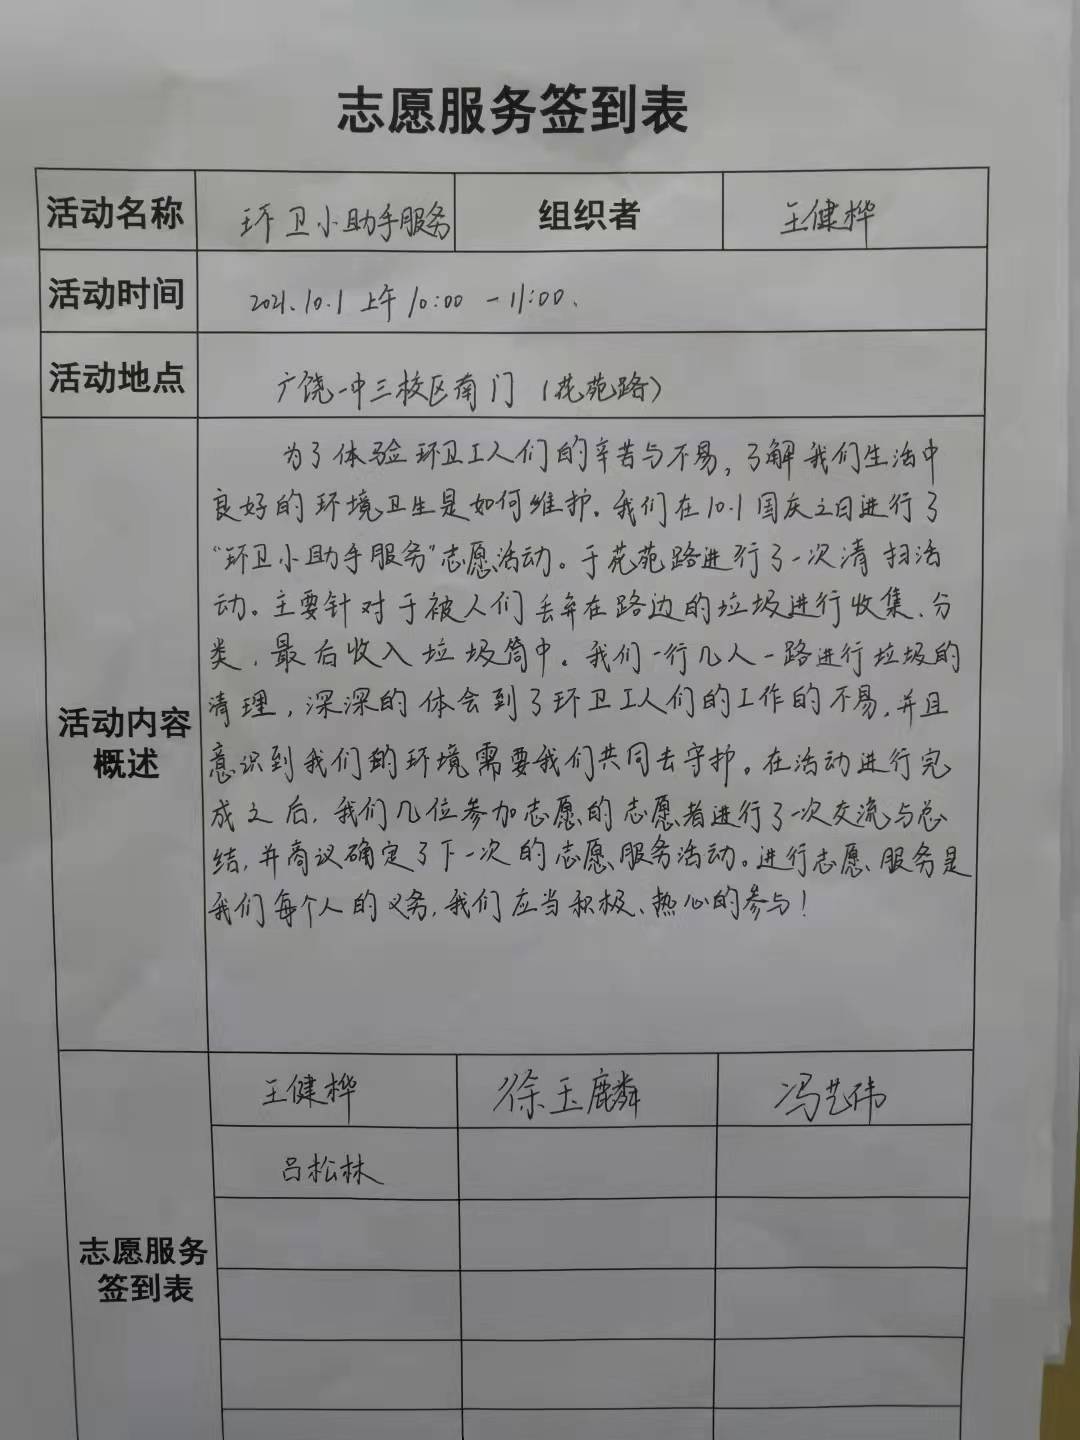 志愿服务签到表
活动名称 环卫小助手服务 组织者 王健桦
活动时间 2021.10.1 上午 10:00 — 11:00.
活动地点 广饶一中三校区南门（花苑路）
为了体验环卫工人们的辛苦与不易，了解我们生活中
良好的环境卫生是如何维护。我们在10.1国庆之日进行了
“环卫小助手服务”志愿活动。于花苑路进行了一次清扫活
动。主要针对于被人们丢弃在路边的垃圾进行收集、分
类，最后收入垃圾筒中。我们一行几人一路进行垃圾的
清理，深深的体会到了环卫工人们的工作的不易，并且
活动内容
概述
意识到我们的环境需要我们共同去守护。在活动进行完
成之后，我们几位参加志愿的志愿者进行了一次交流与总
结，并商议确定了下一次的志愿服务活动。进行志愿服务是
我们每个人的义务，我们应当积极、热心的参与！
王健桦 徐玉麟 冯艺伟
吕松林
志愿服务
签到表